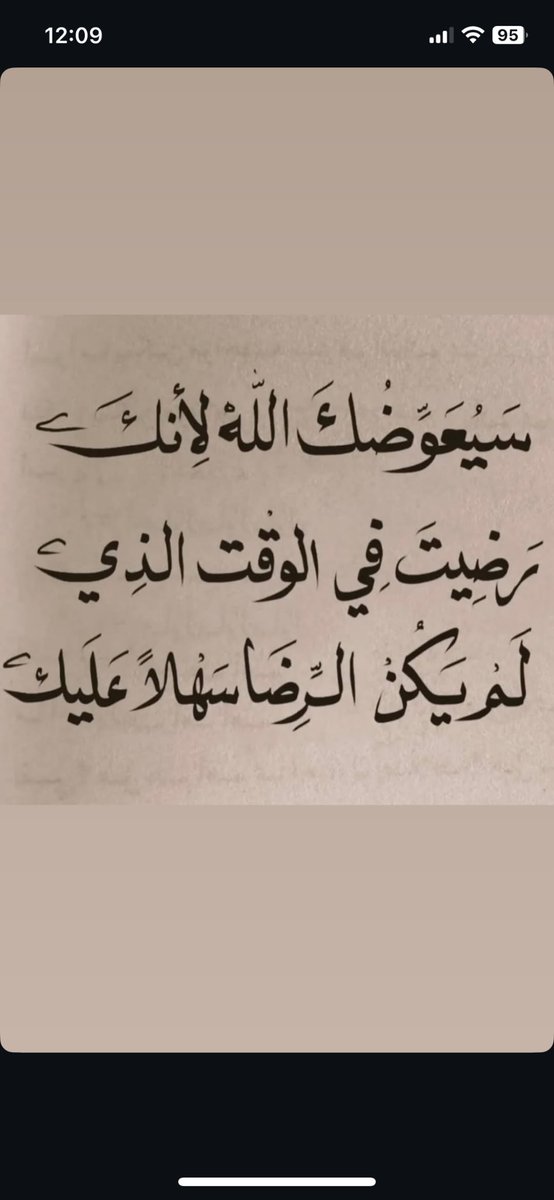 12:09
95
سَيُعَوِّضُكَ اللّٰهُ لِأنكَ
رَضِيتَ فِي الوقْت الذِي
لَمْ يَكُنْ الرِّضَا سَهْلاً عَلَيك